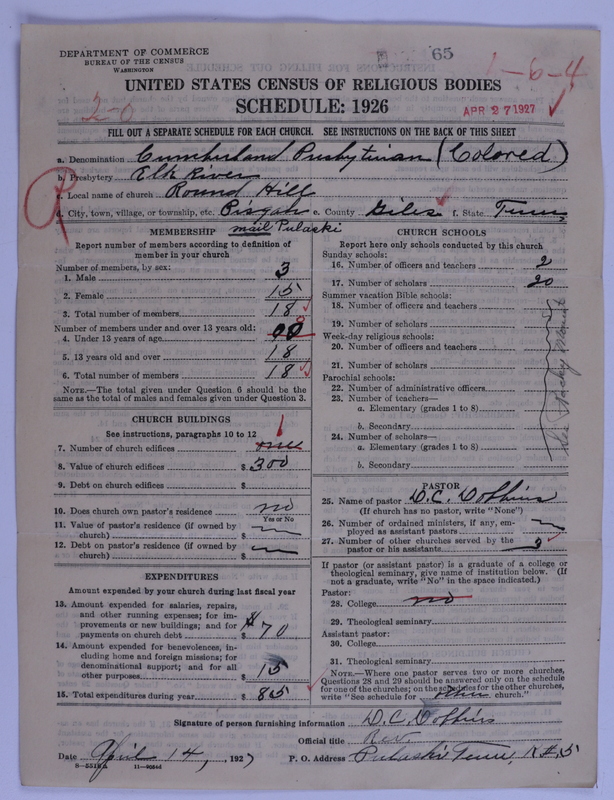 DEPARTMENT OF COMMERCE
BUREAU OF THE CENSUS
WASHINGTON
65
1-6-4
UNITED STATES CENSUS OF RELIGIOUS BODIES
SCHEDULE: 1926
2-0
APR 27 1927
FILL OUT A SEPARATE SCHEDULE FOR EACH CHURCH. SEE INSTRUCTIONS ON THE BACK OF THIS SHEET
a. Denomination Cumberland Presbyterian (Colored)
b. Presbytery Elk River
c. Local name of church Round Hill
d. City, town, village, or township, etc. Pisgah e. County Giles f. State Tenn,
mail Pulaski
MEMBERSHIP
Report number of members according to definition of
member in your church
Number of members, by sex:
1. Male 3
2. Female 15
3. Total number of members 18
Number of members under and over 13 years old:
4. Under 13 years of age 0
5. 13 years old and over 18
6. Total number of members 18
NOTE.—The total given under Question 6 should be the
same as the total of males and females given under Question 3.
CHURCH BUILDINGS
See instructions, paragraphs 10 to 12
7. Number of church edifices 1
8. Value of church edifices $ 300
9. Debt on church edifices $
10. Does church own pastor's residence no
Yes or No
11. Value of pastor's residence (if owned by
church) $
12. Debt on pastor's residence (if owned by
church) $
EXPENDITURES
Amount expended by your church during last fiscal year
13. Amount expended for salaries, repairs,
and other running expenses; for im-
provements or new buildings; and for
payments on church debt $ 70
14. Amount expended for benevolences, in-
cluding home and foreign missions; for
denominational support; and for all
other purposes $ 15
15. Total expenditures during year $ 85
CHURCH SCHOOLS
Report here only schools conducted by this church
Sunday schools:
16. Number of officers and teachers 2
17. Number of scholars 20
Summer vacation Bible schools:
18. Number of officers and teachers
19. Number of scholars
Week-day religious schools:
20. Number of officers and teachers
21. Number of scholars
Parochial schools:
22. Number of administrative officers
23. Number of teachers—
a. Elementary (grades 1 to 8)
b. Secondary
24. Number of scholars—
a. Elementary (grades 1 to 8)
b. Secondary
PASTOR
25. Name of pastor D.C. Dobbins
(If church has no pastor, write "None")
26. Number of ordained ministers, if any, em-
ployed as assistant pastors
27. Number of other churches served by the
pastor or his assistants
If pastor (or assistant pastor) is a graduate of a college or
theological seminary, give name of institution below. (If
not a graduate, write "No" in the space indicated.)
Pastor:
28. College no
29. Theological seminary
Assistant pastor:
30. College
31. Theological seminary
NOTE.—Where one pastor serves two or more churches,
Questions 28 and 29 should be answered only on the schedule
for one of the churches; on the schedules for the other churches,
write "See schedule for church."
Signature of person furnishing information D.C. Dobbins
Official title Rev.
Date April 14, 1927 P. O. Address Pulaski Tenn, R#5
11—9056d